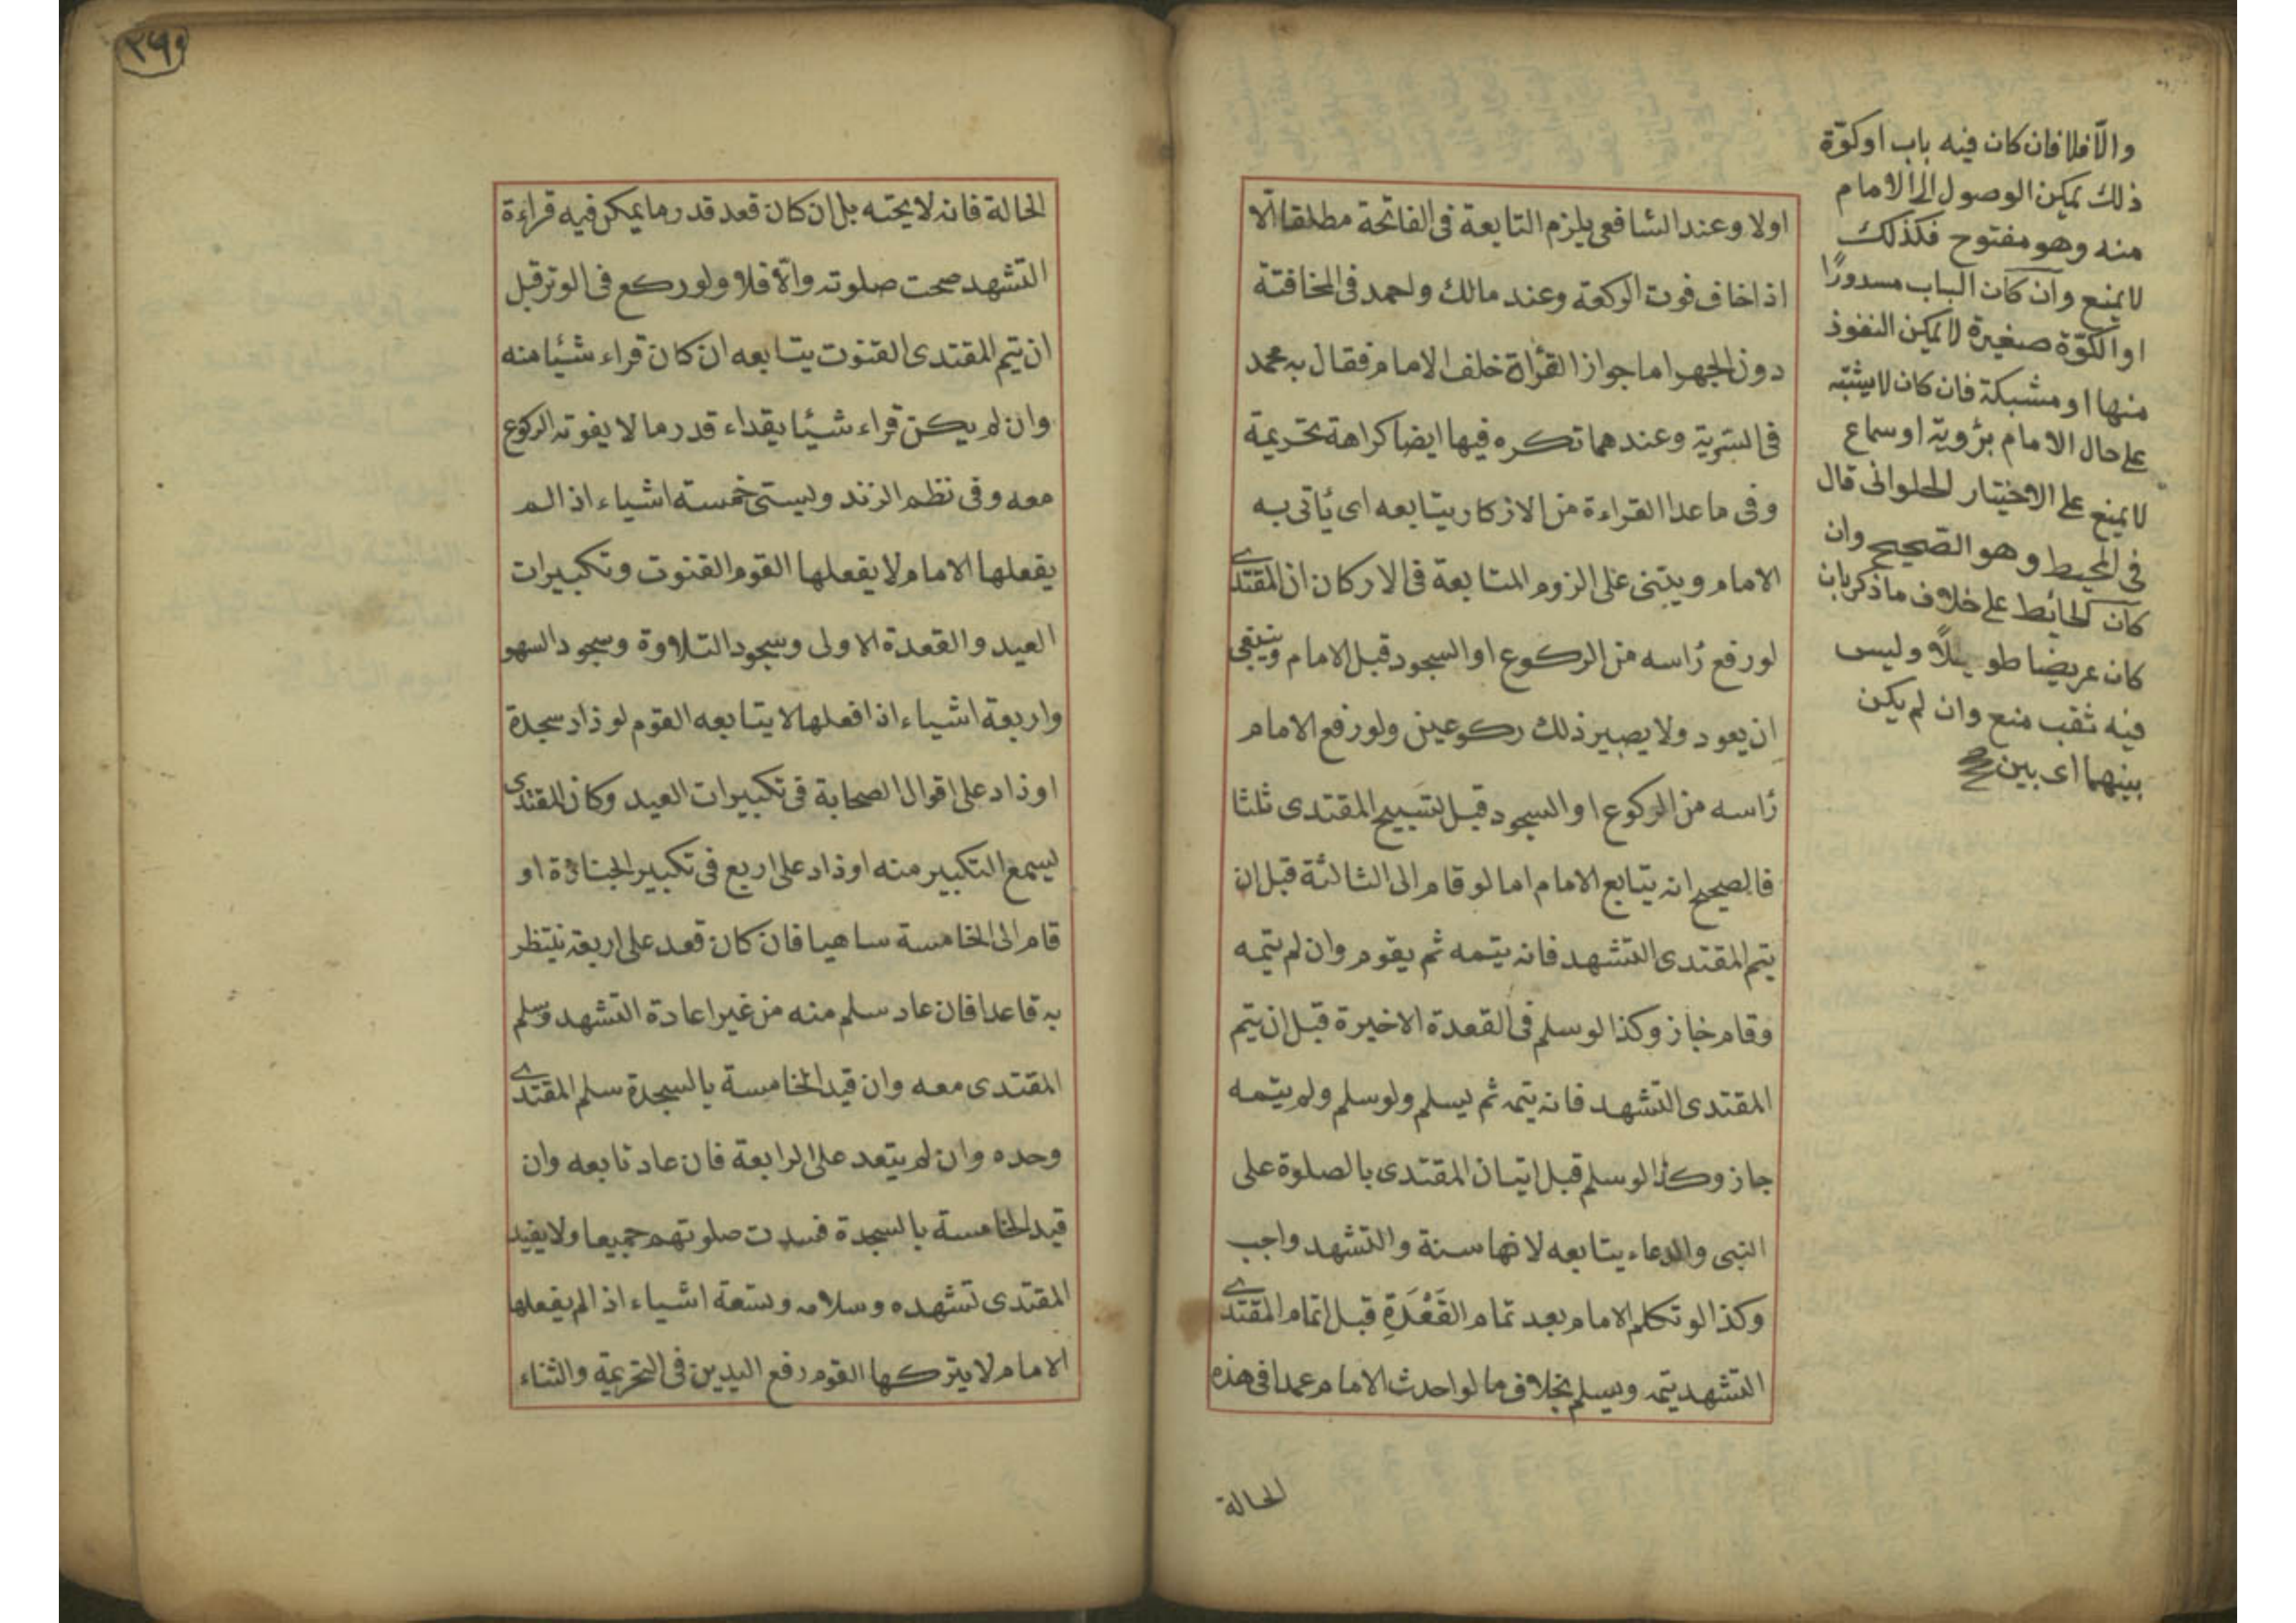 اولا وعند الشافعى يلزم التابعة فى الفاتحة مطلقا الا
اذا خاف فوت الركعة وعند مالك واحمد فى المخافتة
دون الجهر اما جواز القرأة خلف الامام فقال به محمد
فى السرية وعندهما تكره فيها ايضا كراهة تحريمة
وفى ما عدا القراءة من الازكار يتابعه اى يأتى به
الامام ويبتنى على الزوم المتابعة فى الاركان ان المقتدى
لو رفع رأسه من الركوع او السجود قبل الامام وينبغى
ان يعود ولا يصير ذلك ركوعين ولو رفع الامام
رأسه من الركوع او السجود قبل تسبيح المقتدى ثلثا
فالصحيح انه يتابع الامام اما لو قام الى الثالثة قبل ان
يتم المقتدى التشهد فانه يتمه ثم يقوم وان لم يتمه
وقام جاز وكذا لو سلم فى القعدة الاخيرة قبل ان يتم
المقتدى التشهد فانه يتمه ثم يسلم ولو سلم ولم يتمه
جاز وكذا لو سلم قبل اتيان المقتدى بالصلوة على
النبى والدعاء يتابعه لانها سنة والتشهد واجب
وكذا لو تكلم الامام بعد تمام القَعْدَةِ قبل اتمام المقتدى
التشهد يتمه ويسلم بخلاف ما لو احدث الامام عمدا فى هذه
الحالة
والّا فلا فان كان فيه باب او كوّة
ذلك يمكن الوصول الى الامام
منه وهو مفتوح فكذلك
لا يمنع وان كان الباب مسدورًا
او الكوّة صغيرة لا يمكن النفوذ
منها او مشبكة فان كان لا يشتبه
على حال الامام برؤية او سماع
لا يمنع على الاختيار الحلوانى قال
فى المحيط وهو الصحيح وان
كان الحائط على خلاف ما ذكر بان
كان عريضا طويلًا وليس
فيه ثقب منع وان لم يكن
بينهما اى بين
٢٦٩
الحالة فانه لا يحته بل ان كان قعد قدر ما يمكن فيه قراءة
التشهد صحت صلوته والّا فلا ولو ركع فى الوتر قبل
ان يتم المقتدى القنوت يتابعه ان كان قراء شيئا منه
وان لم يكن قراء شيئا يقداء قدر ما لا يفوته الركوع
معه وفى نظم الزند ويستى خمسة اشياء اذا لم
يفعلها الامام لا يفعلها القوم القنوت وتكبيرات
العيد والقعدة الاولى وسجود التلاوة وسجود السهو
واربعة اشياء اذا فعلها لا يتابعه القوم لو زاد سجدة
او زاد على اقوال الصحابة فى تكبيرات العيد وكان المقتدى
يسمع التكبير منه او زاد على اربع فى تكبير الجنازة او
قام الى الخامسة ساهيا فان كان قعد على اربعة ينتظر
به قاعدا فان عاد سلم منه من غير اعادة التشهد وسلم
المقتدى معه وان قيد الخامسة بالسجدة سلم المقتدى
وحده وان لم يتعد على الرابعة فان عاد تابعه وان
قيد الخامسة بالسجدة فسدت صلوتهم جميعا ولا يفيد
المقتدى تشهده وسلامه وستعة اشياء اذا لم يفعلها
الامام لا يتركها القوم رفع اليدين فى التحريمة والثناء